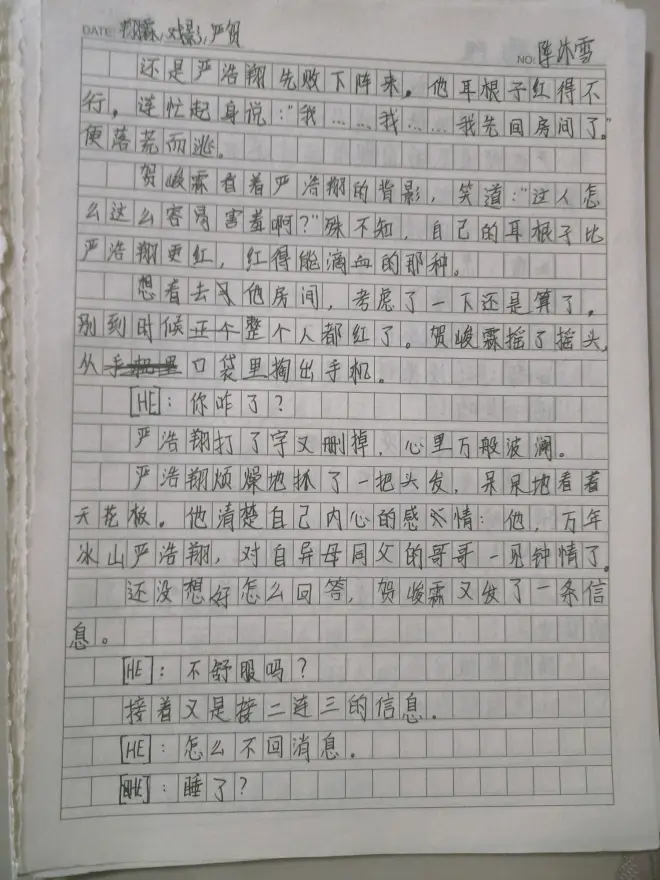 DATE: 翔霖,对影,严贺
NO: 陈沐雪
还是严浩翔先败下阵来。他耳根子红得不
行,连忙起身说:"我……我……我先回房间了。"
便落荒而逃。
贺峻霖看着严浩翔的背影,笑道:"这人怎
么这么容易害羞啊?"殊不知,自己的耳根子比
严浩翔更红,红得能滴血的那种。
想着去他房间,考虑了一下还是算了。
别到时候正个整个人都红了。贺峻霖摇了摇头,
从手机里口袋里掏出手机。
[HE]:你咋了?
严浩翔打了字又删掉,心里万般波澜。
严浩翔烦燥地抓了一把头发,呆呆地看着
天花板。他清楚自己内心的感情:他,万年
冰山严浩翔,对自异母同父的哥哥一见钟情了。
还没想好怎么回答,贺峻霖又发了一条信
息。
[HE]:不舒服吗?
接着又是接二连三的信息.
[HE]:怎么不回消息。
[HE]:睡了?